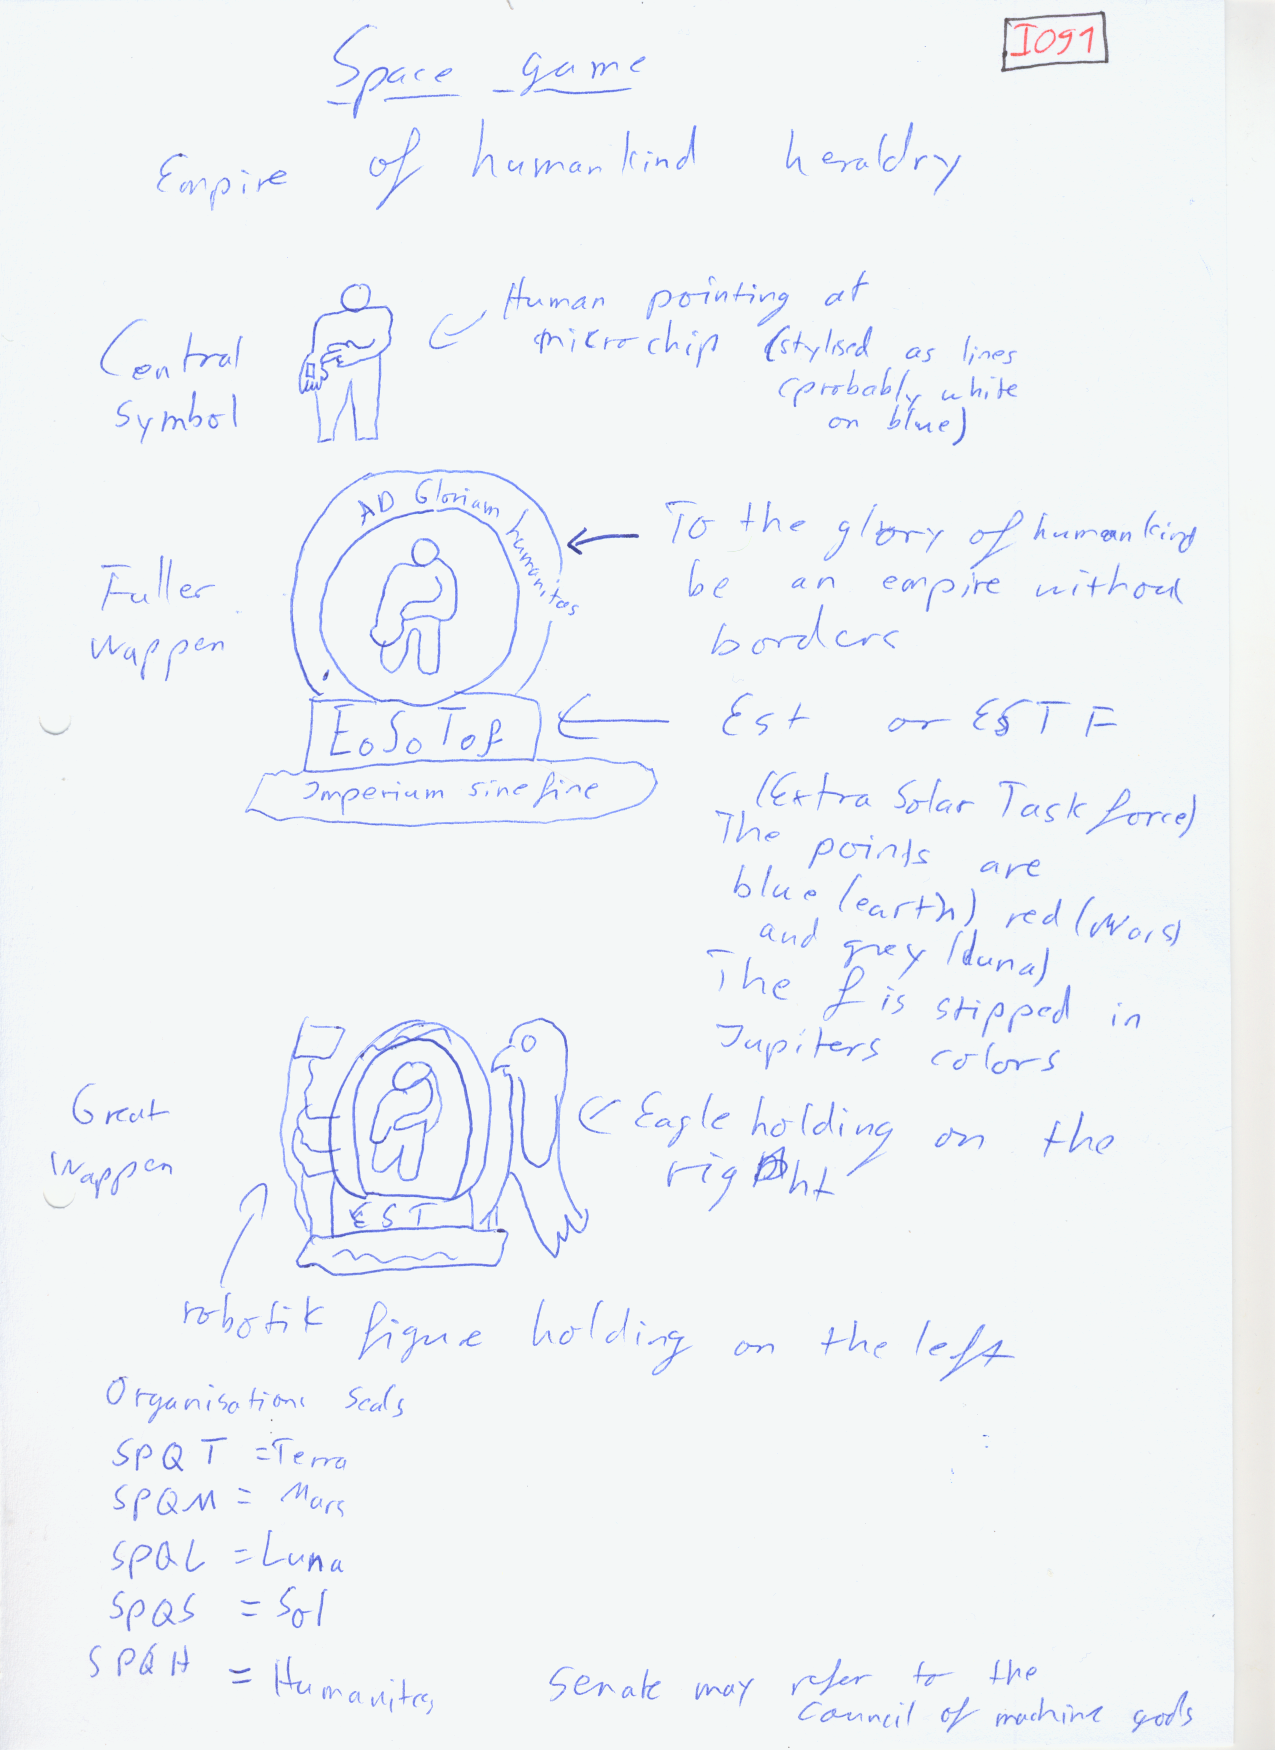 Space game
I091
Empire of humankind heraldry
Central
symbol
Human pointing at
microchip (stylised as lines
(probably white
on blue)
AD Gloriam humanitas
Fuller
Wappen
To the glory of humankind
be an empire without
borders
EoSoTof
Imperium sine fine
Est or ESTF
(Extra Solar Task force)
The points are
blue (earth) red (Mars)
and grey (Luna)
The f is stipped in
Jupiters colors
Great
Wappen
EST
Eagle holding on the
right
robotik figure holding on the left
Organisations Seals
SPQT = Terra
SPQM = Mars
SPQL = Luna
SPQS = Sol
SPQH = Humanitas
Senate may refer to the
Council of machine gods